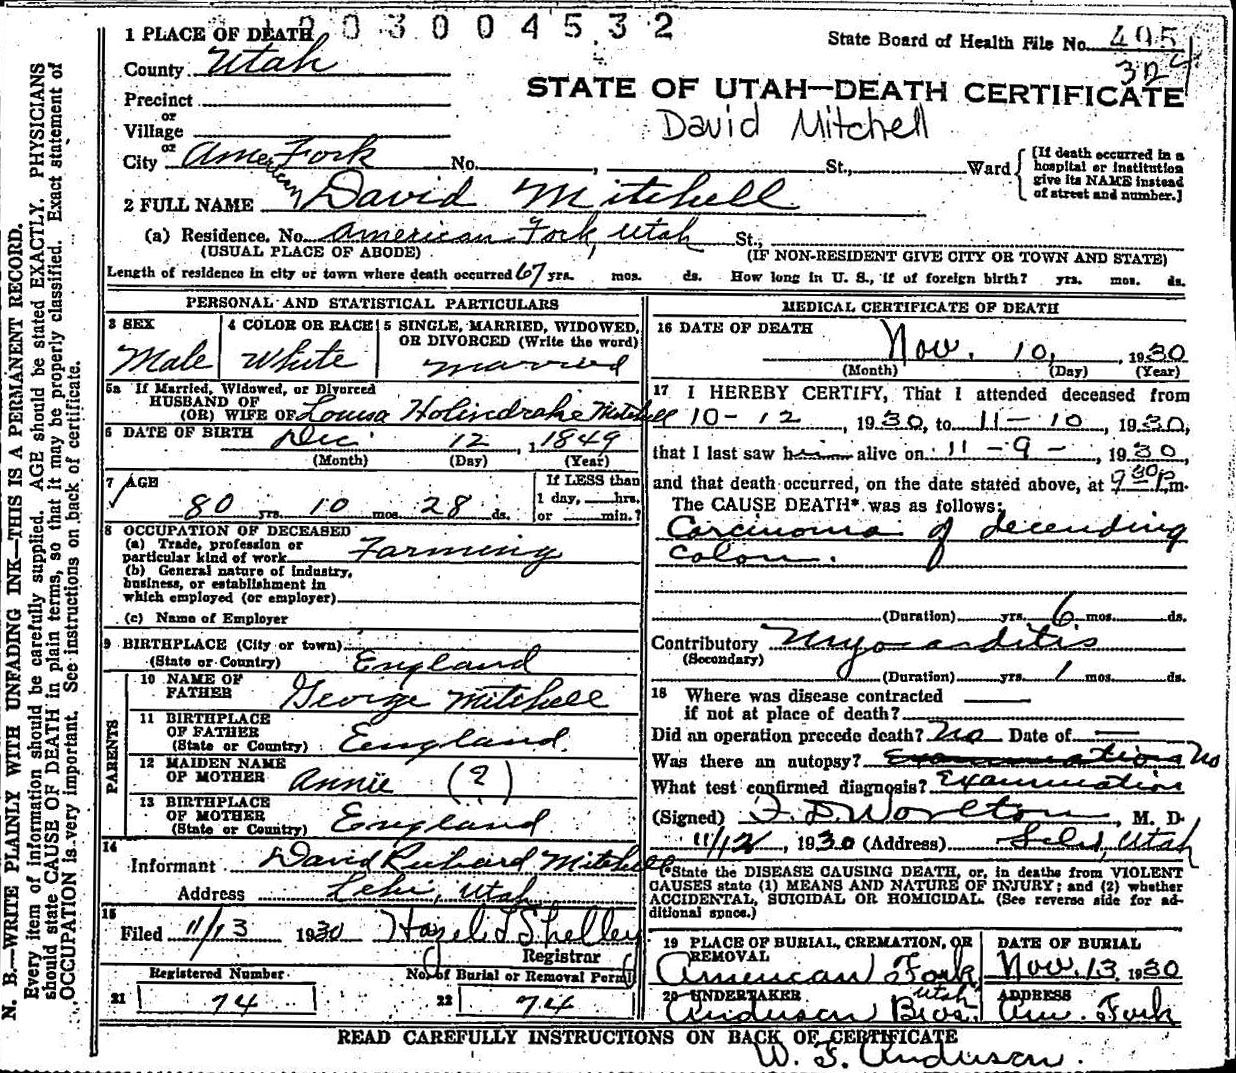 1003004532
1 PLACE OF DEATH
State Board of Health File No. 405
324
County Utah
STATE OF UTAH—DEATH CERTIFICATE
Precinct
or
Village
David Mitchell
or
City Amer Fork No. , St., Ward
American
[If death occurred in a hospital or institution give its NAME instead of street and number.]
2 FULL NAME David Mitchell
(a) Residence. No. American Fork, Utah St.,
(USUAL PLACE OF ABODE) (IF NON-RESIDENT GIVE CITY OR TOWN AND STATE)
Length of residence in city or town where death occurred 67 yrs. mos. ds. How long in U. S., if of foreign birth? yrs. mos. ds.
PERSONAL AND STATISTICAL PARTICULARS
3 SEX
Male
4 COLOR OR RACE
White
5 SINGLE, MARRIED, WIDOWED, OR DIVORCED (Write the word)
married
5a If Married, Widowed, or Divorced
HUSBAND OF
(OR) WIFE OF Louisa Holindrake Mitchell
6 DATE OF BIRTH Dec. 12, 1849
(Month) (Day) (Year)
7 AGE
80 yrs. 10 mos. 28 ds.
If LESS than
1 day, hrs.
or min.?
8 OCCUPATION OF DECEASED
(a) Trade, profession or
particular kind of work Farming
(b) General nature of industry,
business, or establishment in
which employed (or employer)
(c) Name of Employer
9 BIRTHPLACE (City or town)
(State or Country) England
PARENTS
10 NAME OF
FATHER George Mitchell
11 BIRTHPLACE
OF FATHER
(State or Country) England.
12 MAIDEN NAME
OF MOTHER Annie (?)
13 BIRTHPLACE
OF MOTHER
(State or Country) England
14
Informant David Richard Mitchell
Address Lehi, Utah
15
Filed 11/13 1930 Hazel L Shelley
Registrar
Registered Number No. of Burial or Removal Permit
21 74 22 74
MEDICAL CERTIFICATE OF DEATH
16 DATE OF DEATH
Nov. 10, 1930
(Month) (Day) (Year)
17 I HEREBY CERTIFY, That I attended deceased from
10-12, 1930, to 11-10, 1930,
that I last saw him alive on 11-9-, 1930,
and that death occurred, on the date stated above, at 9 30 P.m.
The CAUSE DEATH* was as follows:
Carcinoma of decending
colon.
(Duration) yrs. 6 mos. ds.
Contributory Myocarditis
(Secondary)
(Duration) yrs. 1 mos. ds.
18 Where was disease contracted
if not at place of death?
Did an operation precede death? No Date of
Was there an autopsy? Examination No
What test confirmed diagnosis? Examination
(Signed) F. D. Worlton, M. D.
11/12, 1930 (Address) Lehi, Utah
*State the DISEASE CAUSING DEATH, or, in deaths from VIOLENT
CAUSES state (1) MEANS AND NATURE OF INJURY; and (2) whether
ACCIDENTAL, SUICIDAL OR HOMICIDAL. (See reverse side for ad-
ditional space.)
19 PLACE OF BURIAL, CREMATION, OR
REMOVAL
American Fork
Utah
DATE OF BURIAL
Nov. 13 1930
20 UNDERTAKER
Anderson Bros.
ADDRESS
Am. Fork
READ CAREFULLY INSTRUCTIONS ON BACK OF CERTIFICATE
W. F. Anderson.
N. B.—WRITE PLAINLY WITH UNFADING INK—THIS IS A PERMANENT RECORD.
Every item of information should be carefully supplied. AGE should be stated EXACTLY. PHYSICIANS
should state CAUSE OF DEATH in plain terms, so that it may be properly classified. Exact statement of
OCCUPATION is very important. See instructions on back of certificate.